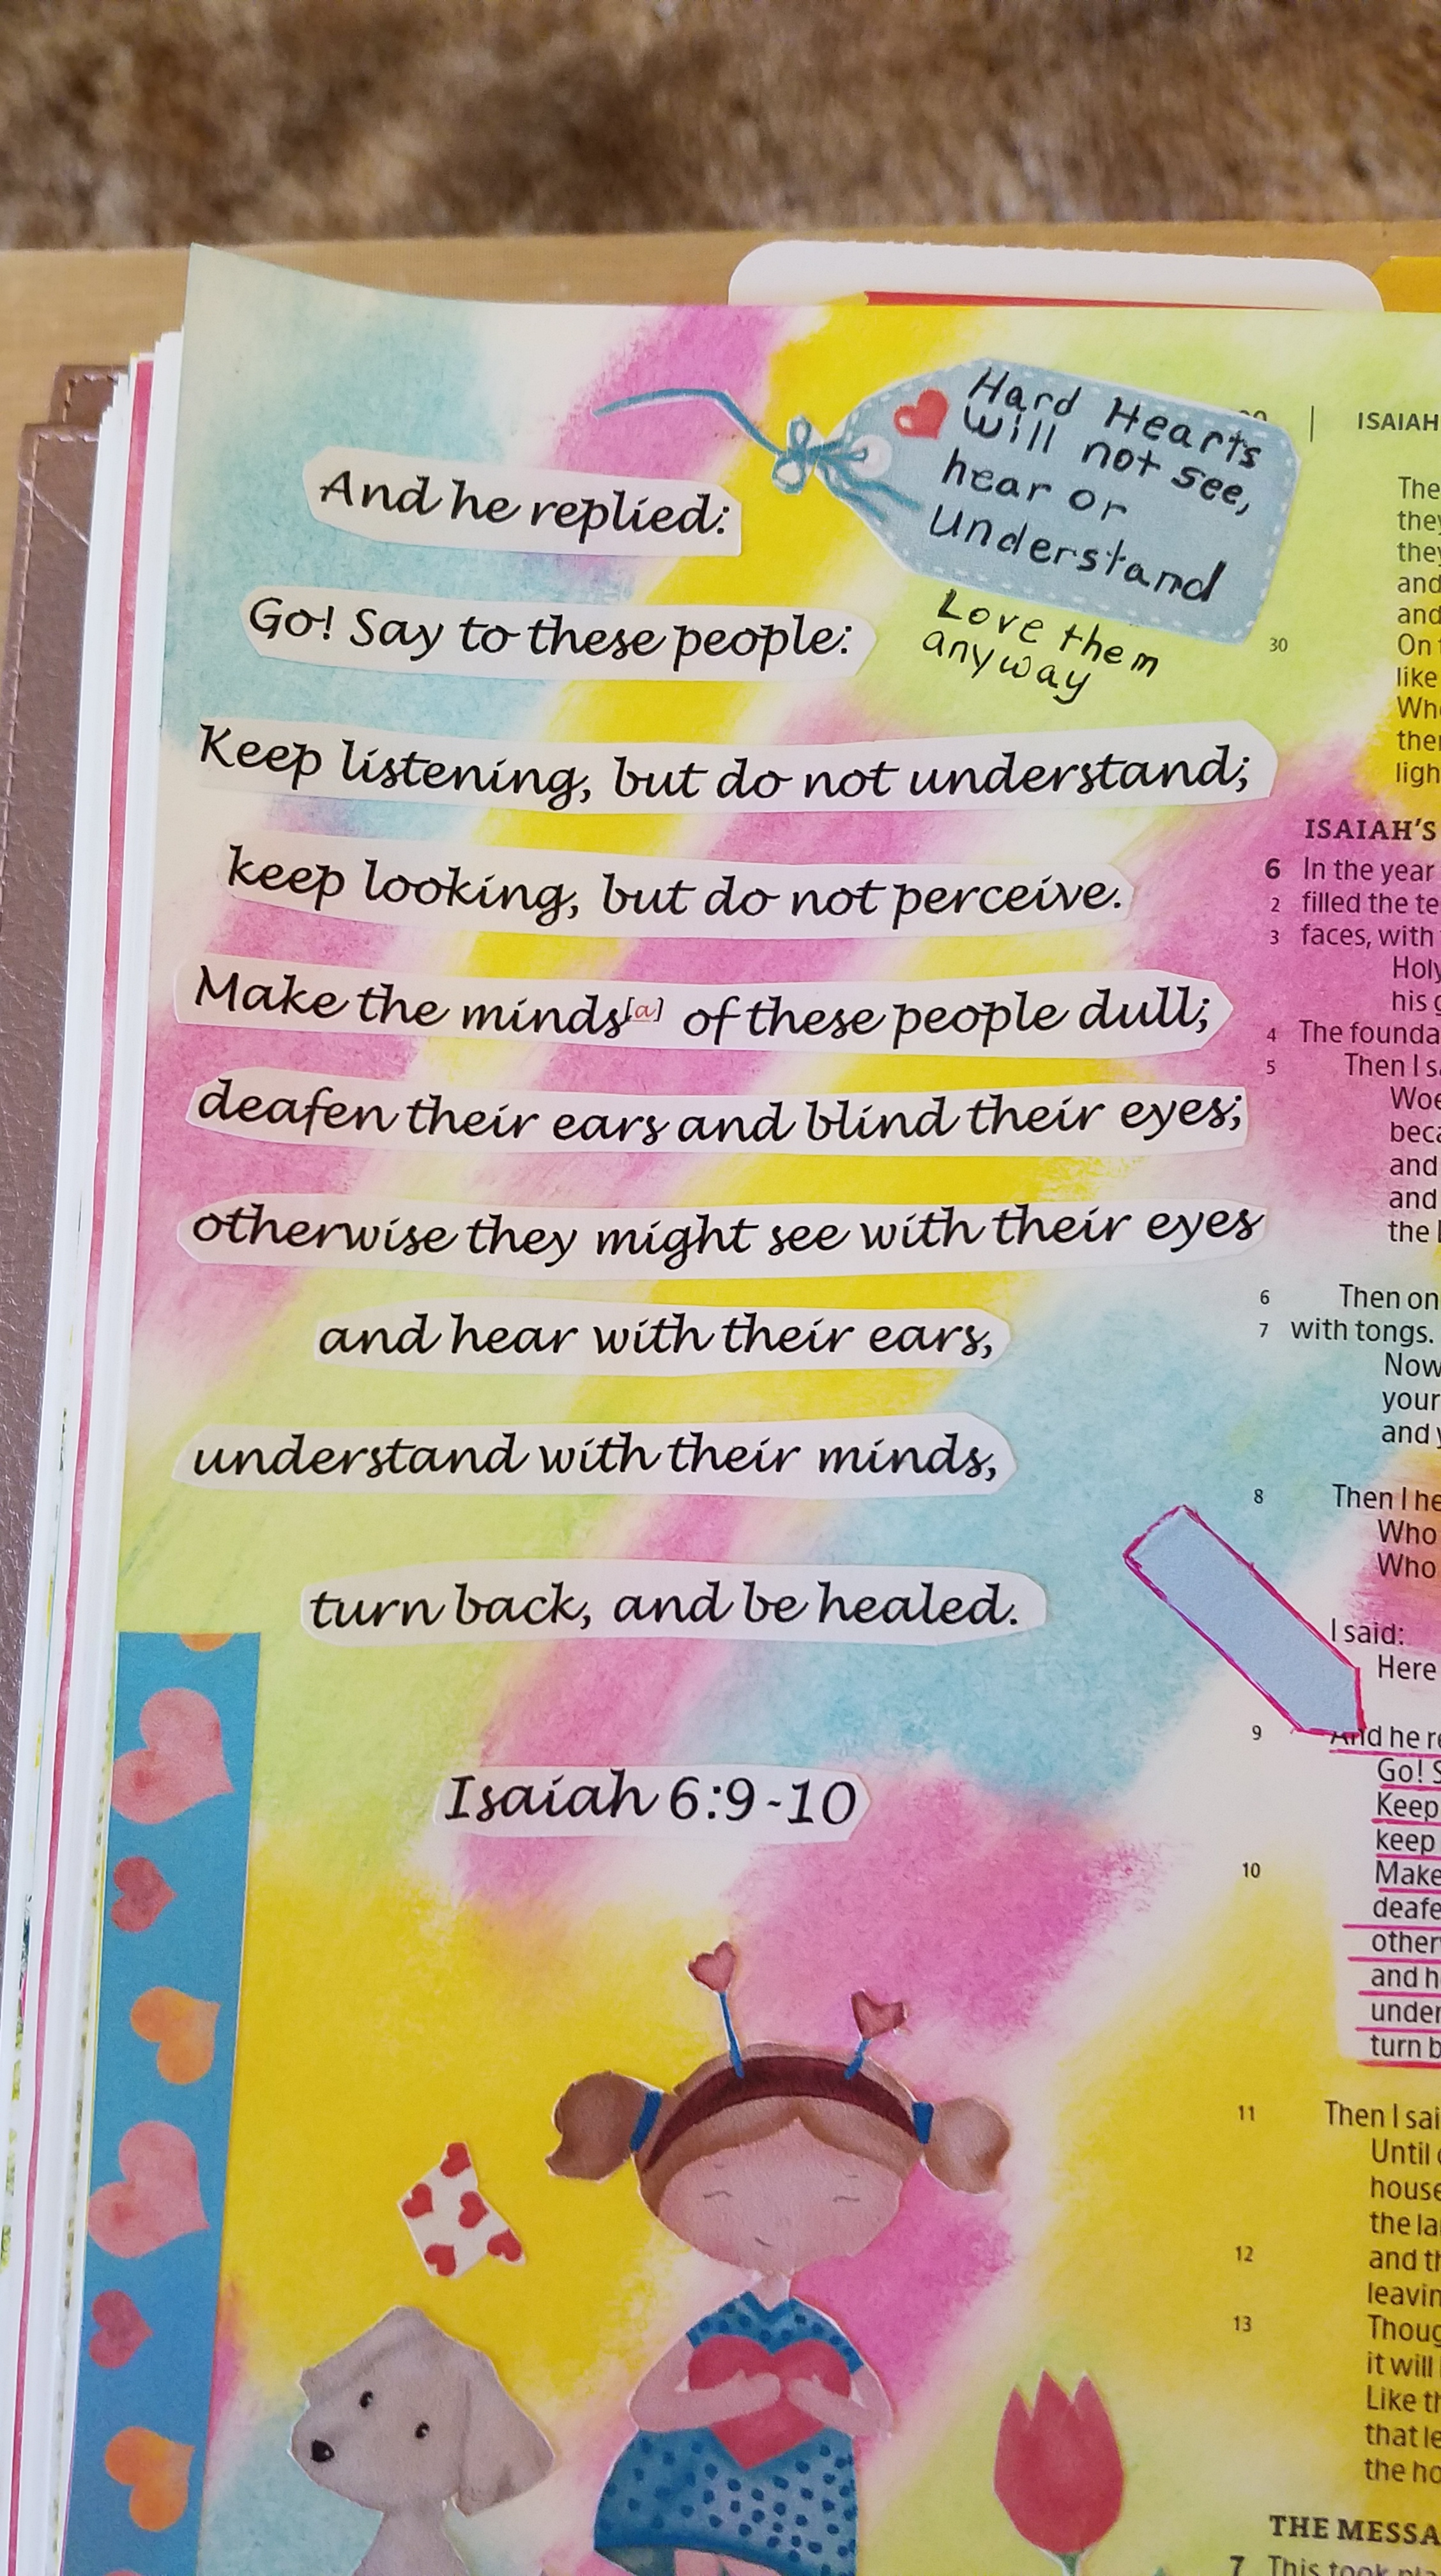 Hard Hearts
will not see,
hear or
understand
Love them
anyway
And he replied:
Go! Say to these people:
Keep listening, but do not understand;
keep looking, but do not perceive.
Make the minds[a] of these people dull;
deafen their ears and blind their eyes;
otherwise they might see with their eyes
and hear with their ears,
understand with their minds,
turn back, and be healed.
Isaiah 6:9-10
ISAIAH
The
they
they
and
and
30 On
like
ther
ISAIAH'S
6 In the year
2 filled the
3 faces, with
Holy
his
4 The
5 Then I
Woe
and
and
the
6 Then on
7 with tongs.
Now
your
and
8 Then I
Who
Who
I said:
Here
9 And he
Go!
Keep
keep
10 Make
and
turn
11 Then I
Until
the
12 and
13
it will
Like
that
the
THE
7 This took